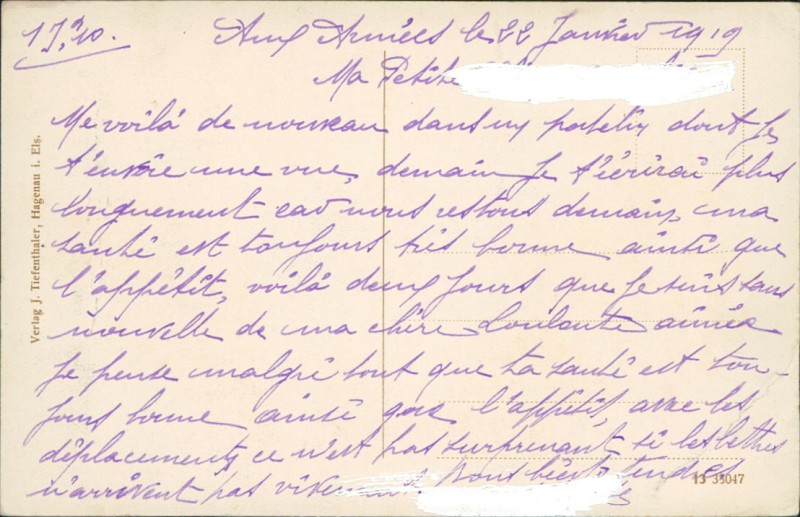 Aux Armées le 22 Janvier 1919
Ma Petite
Me voilà de nouveau dans un patelin dont je
t'envoie une vue, demain je t'écrirai plus
longuement car nous restons demain, ma
santé est toujours très bonne ainsi que
l'appétit, voilà deux jours que je suis sans
nouvelle de ma chère Louloute aimée
je pense malgré tout que ta santé est tou-
jours bonne ainsi que l'appétit, avec les
déplacements ce n'est pas surprenant si les lettres
n'arrivent pas Bons tendres
Verlag J. Tiefenthaler, Hagenau i. Els.
13 35047